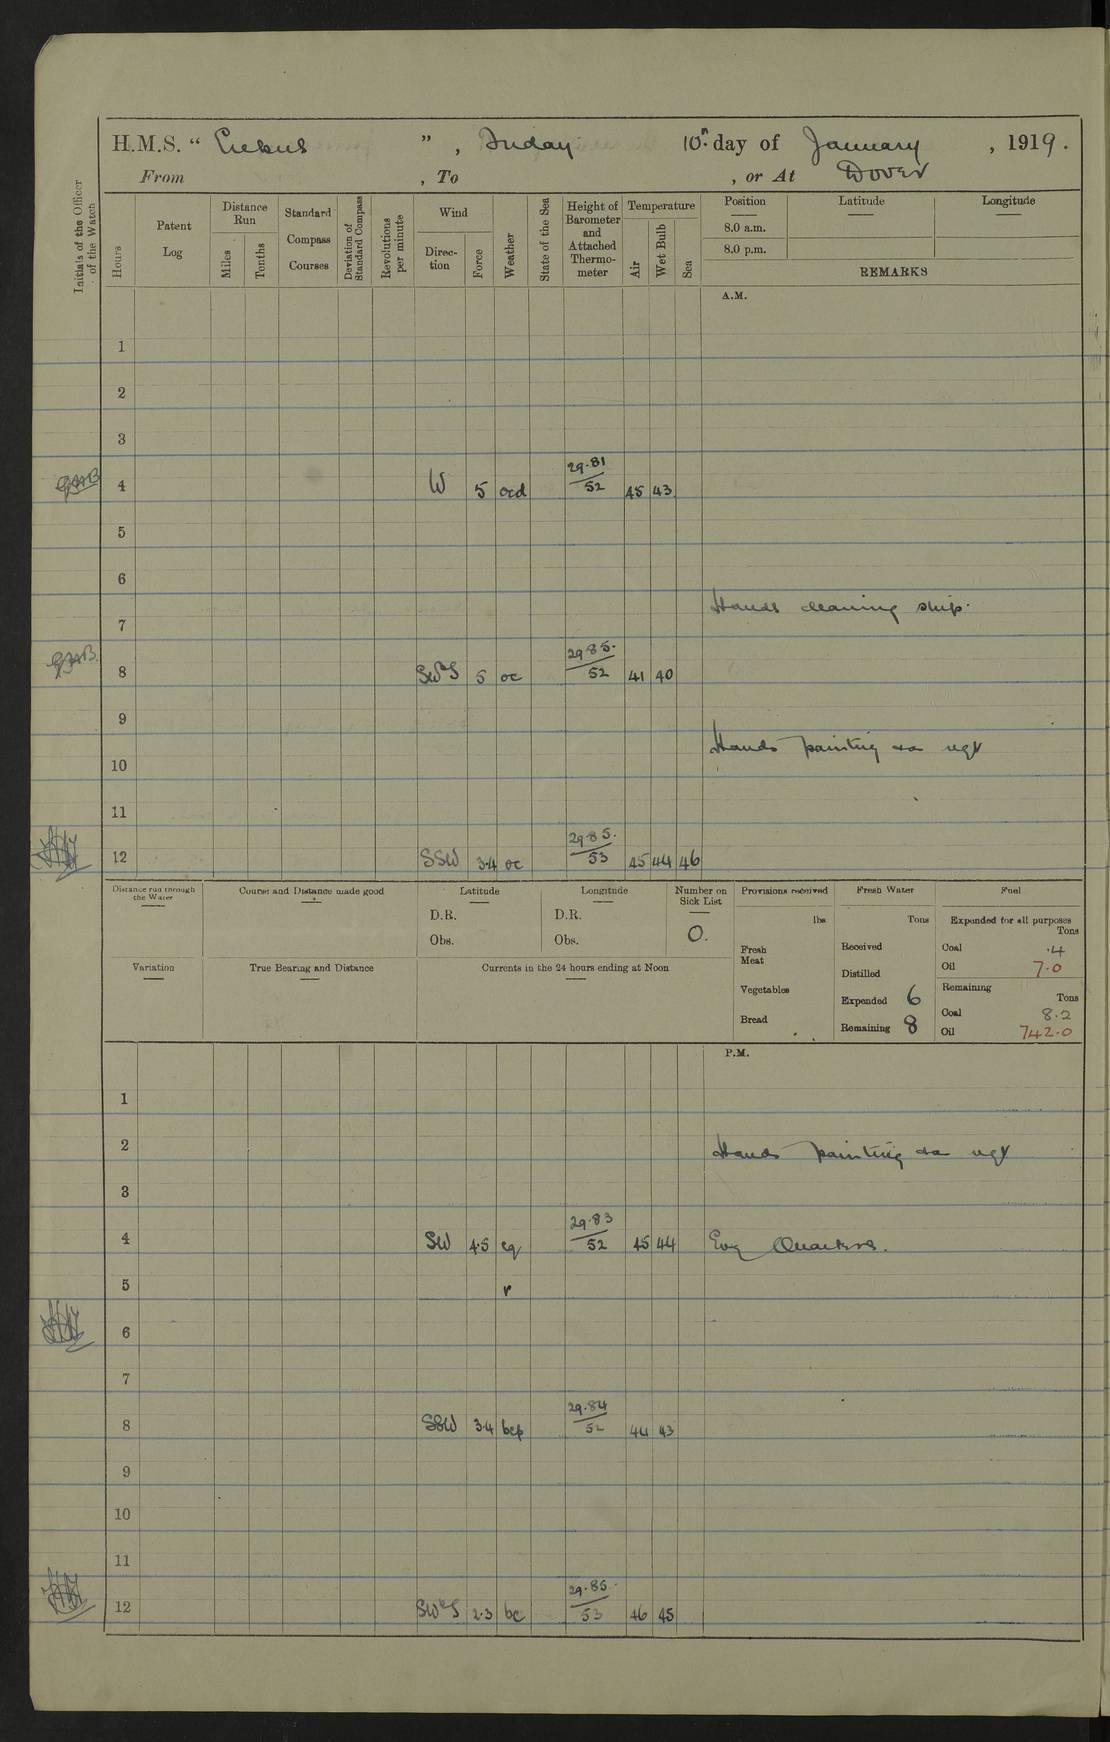 H.M.S. " Erebus ", Friday 10th day of January, 1919.
From , To , or At Dover
Initials of the Officer of the Watch
Hours
Patent Log
Distance Run
Miles
Tenths
Standard Compass Courses
Deviation of Standard Compass
Revolutions per minute
Wind
Direction
Force
Weather
State of the Sea
Height of Barometer and Attached Thermometer
Temperature
Air
Wet Bulb
Sea
Position Latitude Longitude
8.0 a.m.
8.0 p.m.
REMARKS
A.M.
1
2
3
4 W 5 ocd 29.81/52 45 43
5
6
Hands cleaning ship.
7
8 SWbS 5 oc 29.85./52 41 40
9
Hands painting
10
11
12 SSW 3.4 oc 29.85./53 45 44 46
Distance run through the Water
Course and Distance made good
Latitude
D.R.
Obs.
Longitude
D.R.
Obs.
Number on Sick List
0.
Provisions received
lbs
Fresh Meat
Vegetables
Bread
Fresh Water
Tons
Received
Distilled
Expended 6
Remaining 8
Fuel
Expended for all purposes
Tons
Coal .4
Oil 7.0
Remaining
Tons
Coal 8.2
Oil 742.0
Variation
True Bearing and Distance
Currents in the 24 hours ending at Noon
P.M.
1
2 Hands painting
3
4 SW 4.5 cq 29.83/52 45 44 Evg Quarters.
5 r
6
7
8 SSW 3.4 bcp 29.84/52 44 43
9
10
11
12 SWbS 2.3 bc 29.85./53 46 45